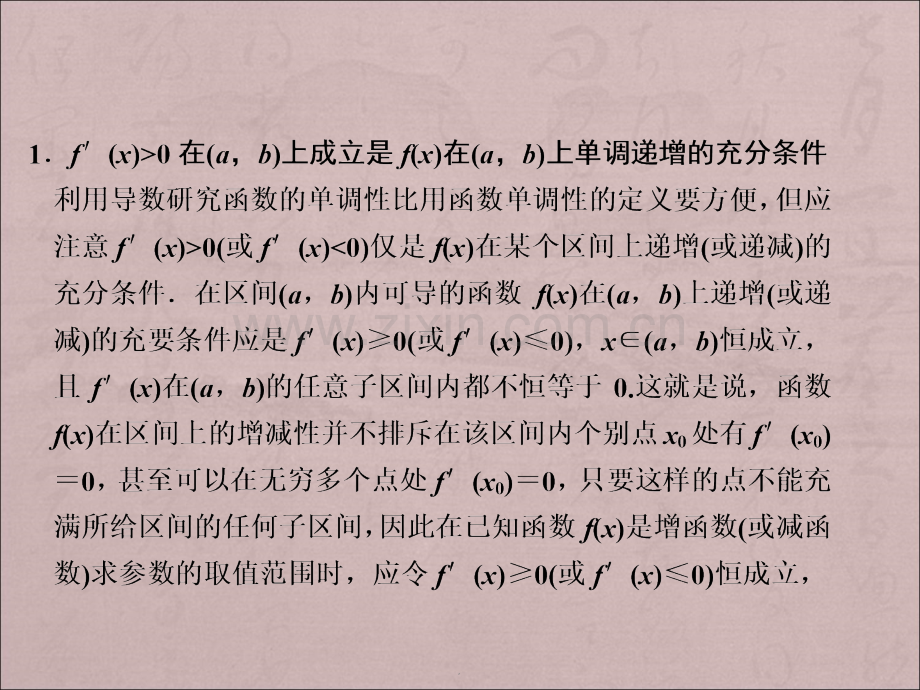 1．f′(x)>0 在(a，b)上成立是 f(x)在(a，b)上单调递增的充分条件
利用导数研究函数的单调性比用函数单调性的定义要方便，但应
注意 f′(x)>0(或 f′(x)<0)仅是 f(x)在某个区间上递增(或递减)的
充分条件．在区间(a，b)内可导的函数 f(x)在(a，b)上递增(或递
减)的充要条件应是 f′(x)≥0(或 f′(x)≤0)，x∈(a，b)恒成立，
且 f′(x)在(a，b)的任意子区间内都不恒等于 0.这就是说，函数
f(x)在区间上的增减性并不排斥在该区间内个别点 x₀ 处有 f′(x₀)
＝0，甚至可以在无穷多个点处 f′(x₀)＝0，只要这样的点不能充
满所给区间的任何子区间，因此在已知函数 f(x)是增函数(或减函
数)求参数的取值范围时，应令 f′(x)≥0(或 f′(x)≤0)恒成立，
www.zixin.com.cn